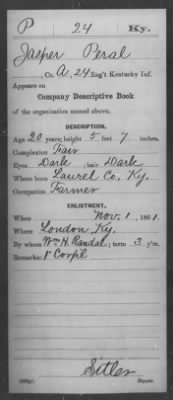 P 24 Ky.
Jasper Peral
, Co. A, 24 Reg't Kentucky Inf.
Appears on
Company Descriptive Book
of the organization named above.
DESCRIPTION.
Age 20 years; height 5 feet 7 inches.
Complexion Fair
Eyes Dark; hair Dark
Where born Laurel Co, Ky.
Occupation Farmer
ENLISTMENT.
When Nov. 1, 1861.
Where London Ky.
By whom Wm H. Randal; term 3 y'rs.
Remarks: Corpl
Sitler
Copyist.